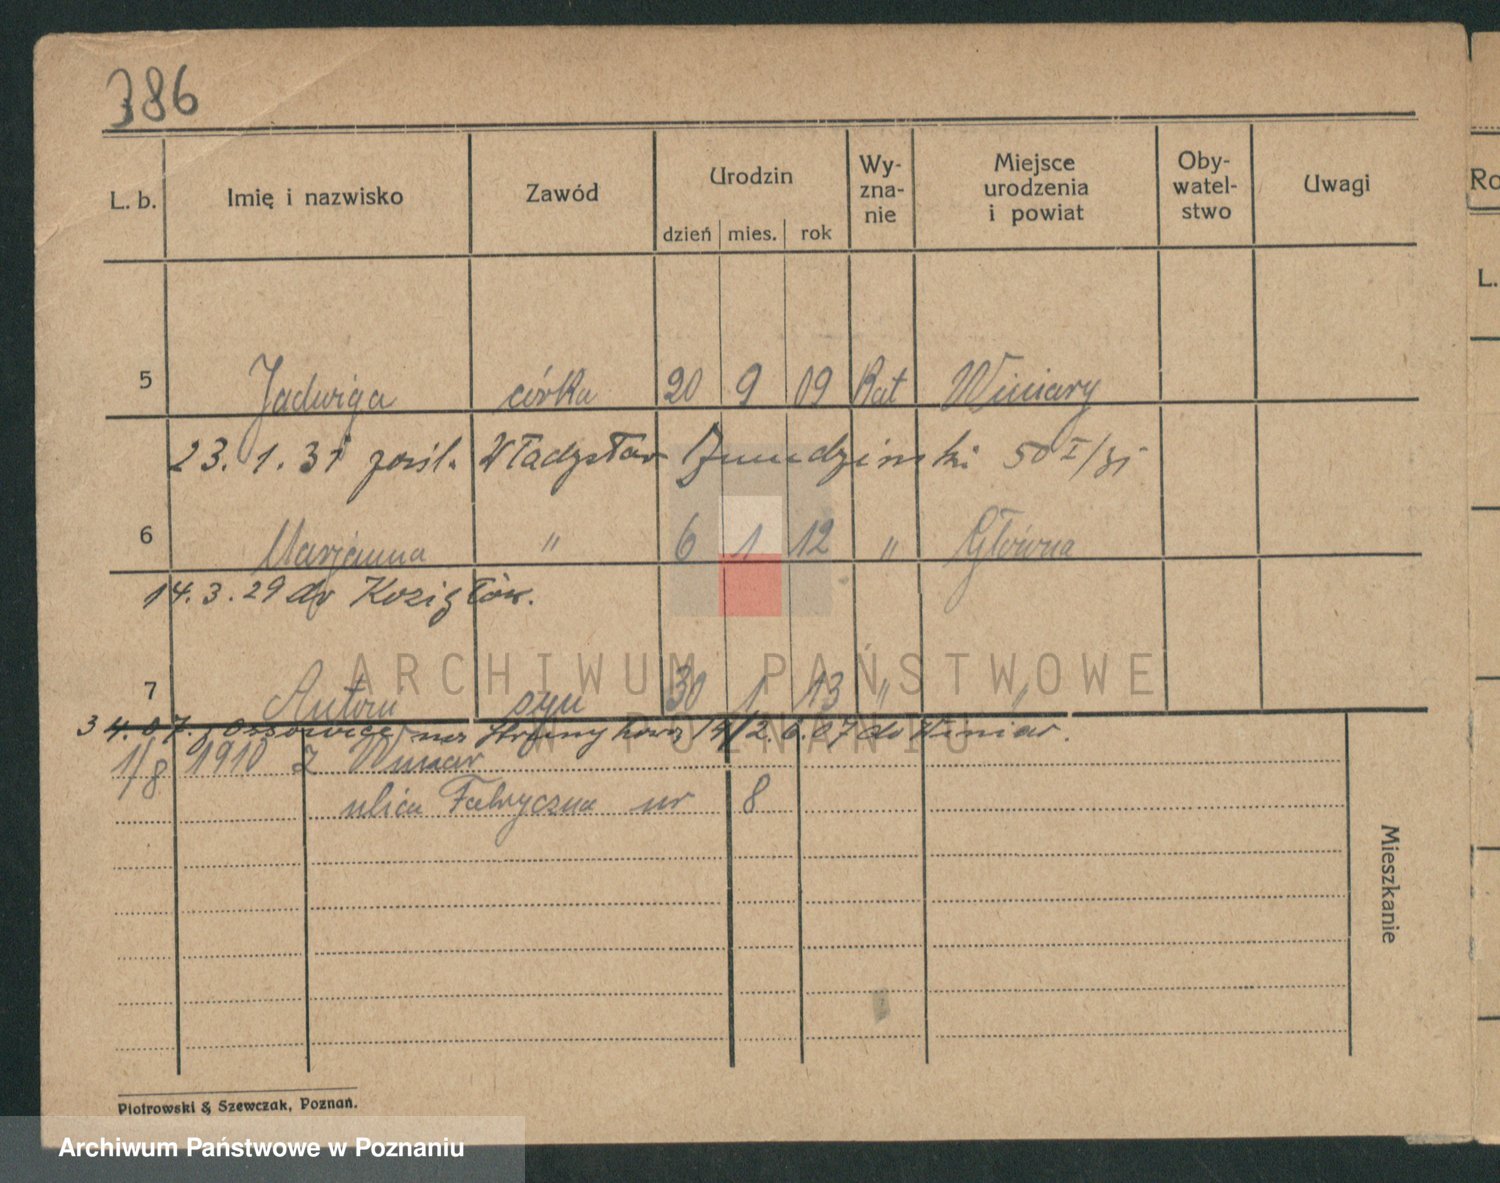 386
L. b. Imię i nazwisko Zawód Urodzin dzień mies. rok Wy-zna-nie Miejsce urodzenia i powiat Oby-watel-stwo Uwagi
5 Jadwiga córka 20 9 09 Kat Winiary
23. 1. 31 pośl. Władysław 50 I/31
6 Marjanna " 6 1 12 " Główna
14. 3. 29 do Kozigłów.
7 Antoni syn 30 1 13 " "
3 4. 07. 12. 6. 07 do Winiar.
1/8 1910 z Winiar
ulica Fabryczna nr 8
Mieszkanie
Piotrowski & Szewczak, Poznań.
ARCHIWUM PAŃSTWOWE
W POZNANIU
Archiwum Państwowe w Poznaniu
Ro
L.